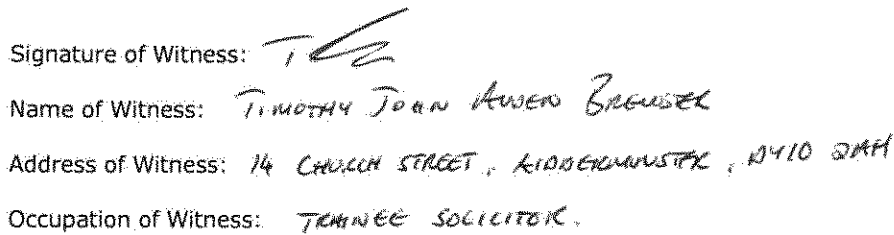 Signature of Witness:
Name of Witness: TIMOTHY JOHN ALLEN BREWSTER
Address of Witness: 14 CHURCH STREET, KIDDERMINSTER, DY10 2AH
Occupation of Witness: TRAINEE SOLICITOR.